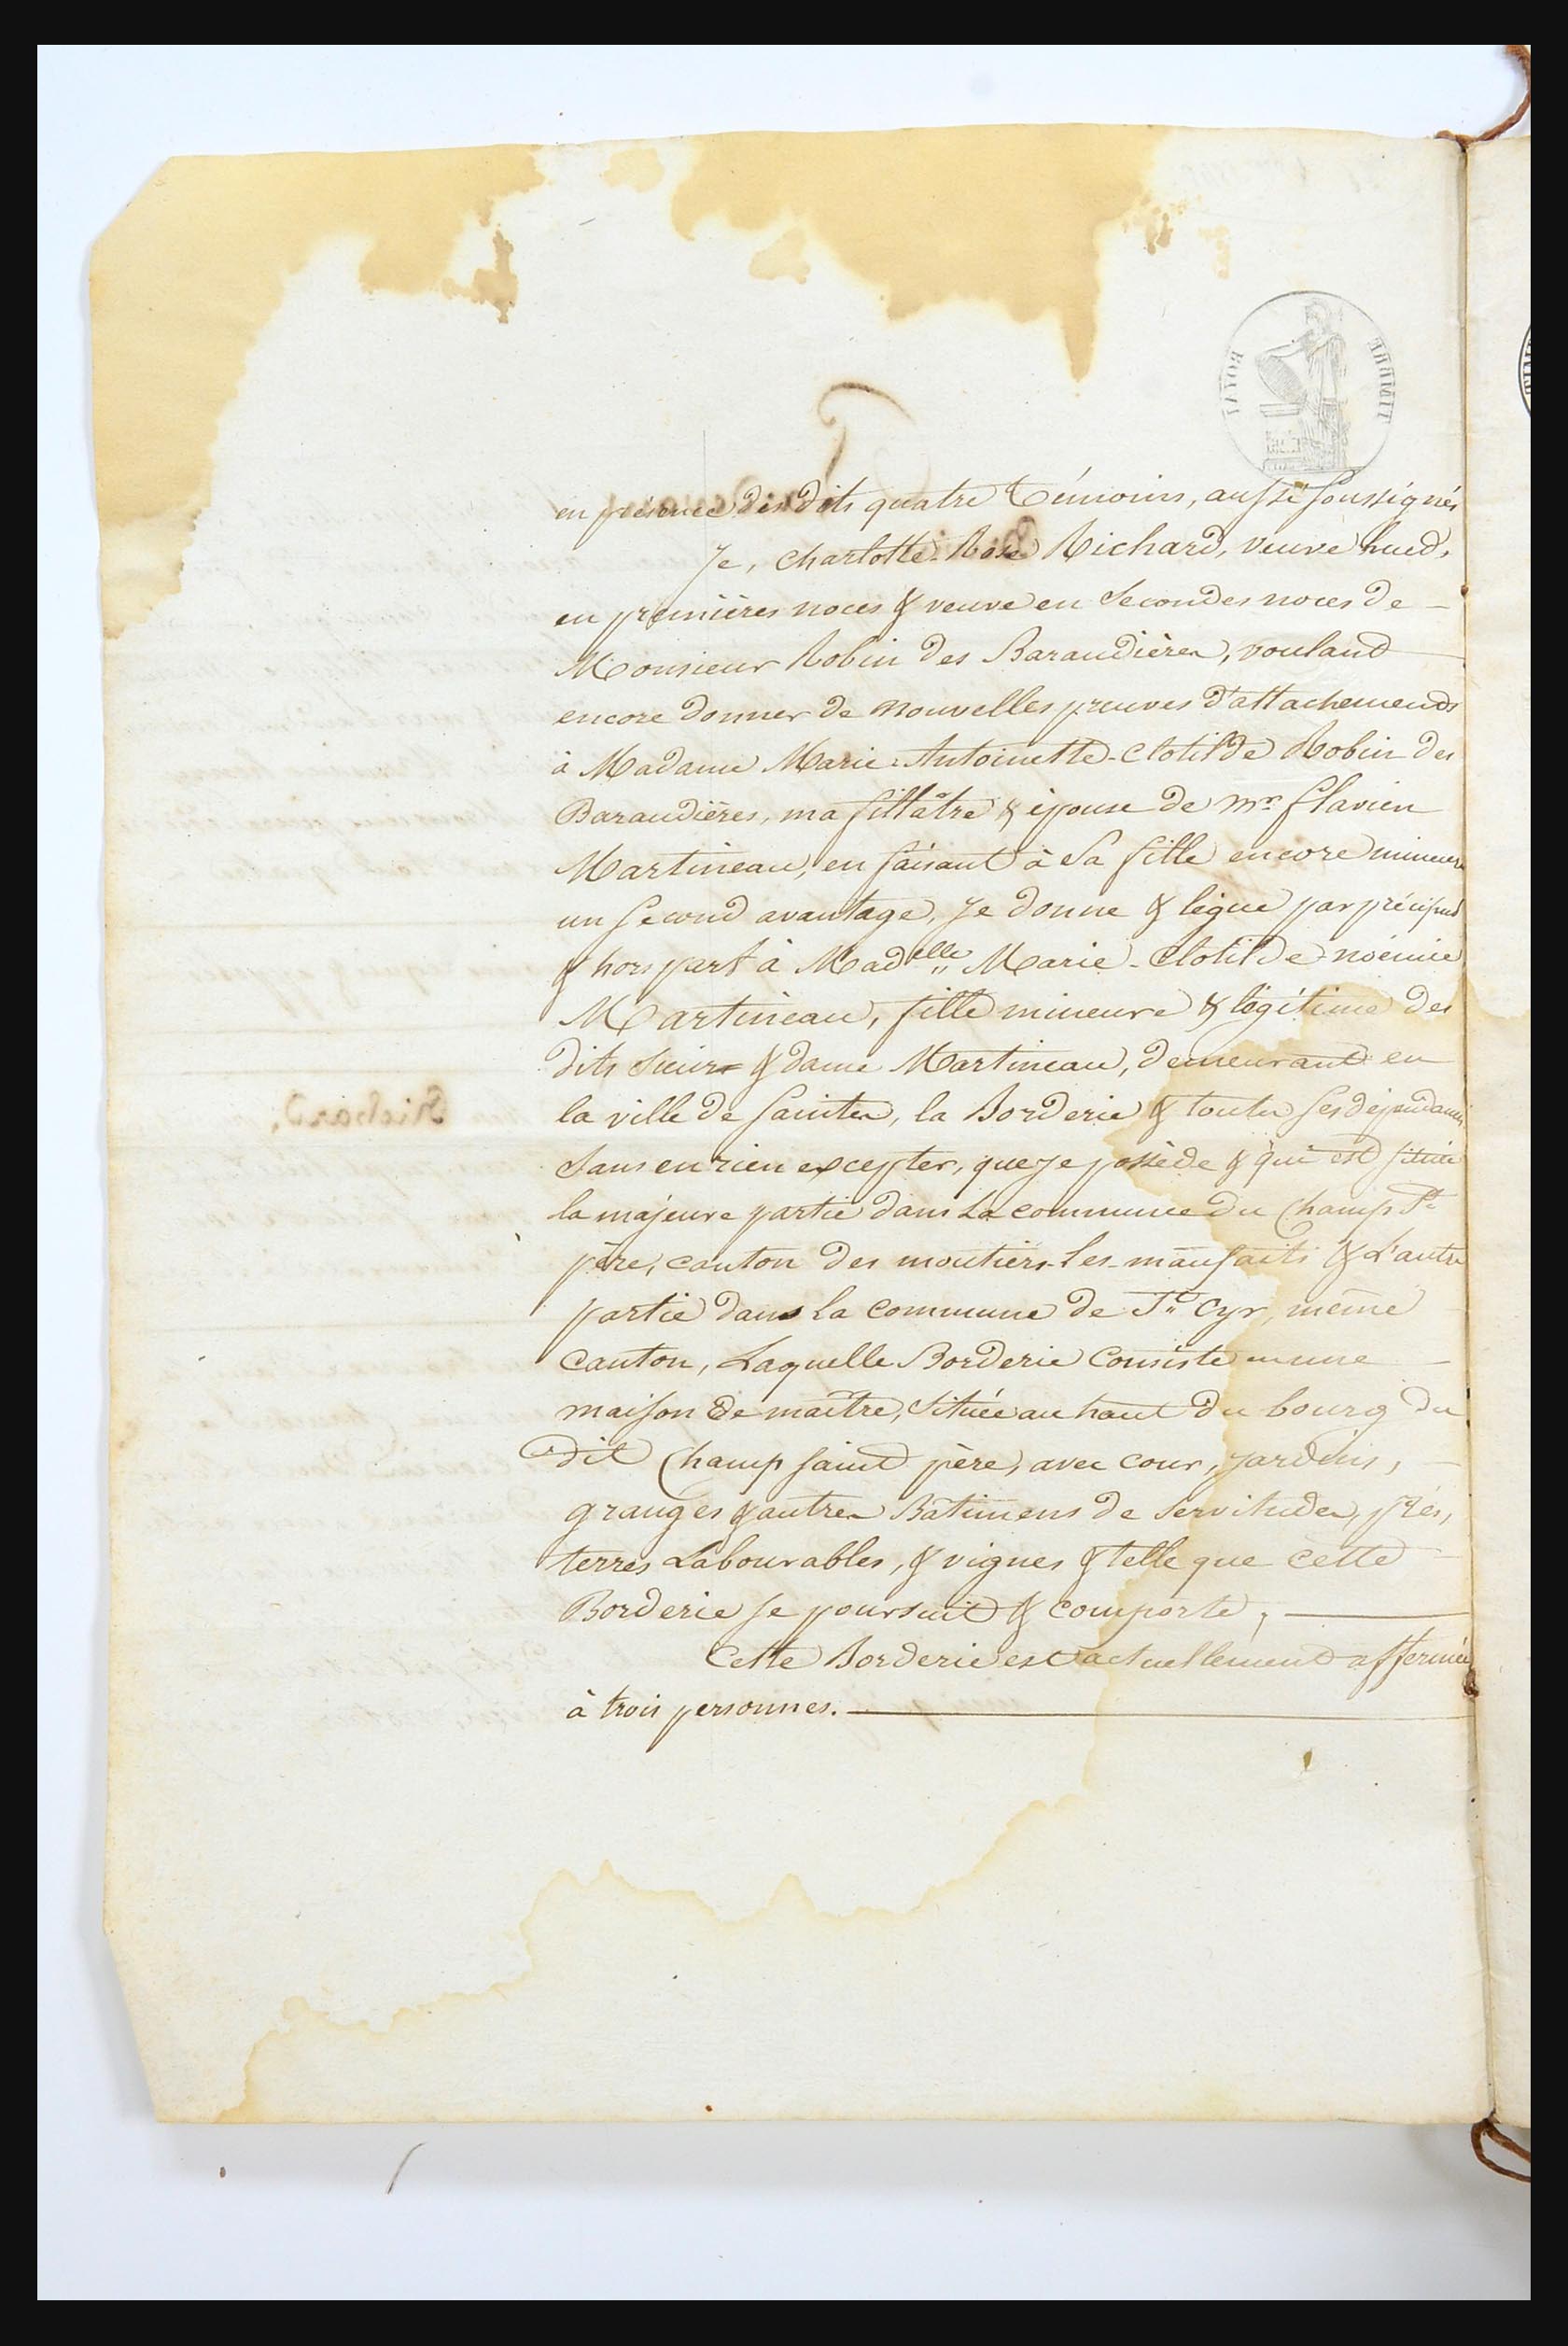 TIMBRE ROYAL
en présence des dits quatre témoins, aussi soussignés
Je, Charlotte-Rose Richard, veuve hued,
en premières noces & veuve en Secondes noces de
Monsieur Robin des Baraudières, vouland
encore donner de nouvelles preuves d'attachements
à Madame Marie-Antoinette-Clotilde Robin des
Baraudières, ma fillâtre & épouse de mr. flavien
Martineau, en faisant à Sa fille encore mineure
un Second avantage, Je donne & lègue par préciput
& hors part à Madelle Marie-Clotilde-noémie
Martineau, fille mineure & légitime des
dits Sieur & dame Martineau, demeurant en
la ville de Saintes, la Borderie & toutes ses dépendances
Sans en rien excepter, que je possède & qui est située
la majeure partie dans La commune du Champ St
père, canton des moutiers-les-maufaits & L'autre
partie dans La Commune de St Cyr, même
Canton, Laquelle Borderie Consiste en une
maison de maître, Située au haut du bourg du
dit Champ Saint père, avec cour, jardins,
granges & autres Batimens de Servitudes, prés,
terres Labourables, & vignes & telle que cette
Borderie se poursuit & comporte,
Cette Borderie est actuellement affermée
à trois personnes.
Richard.